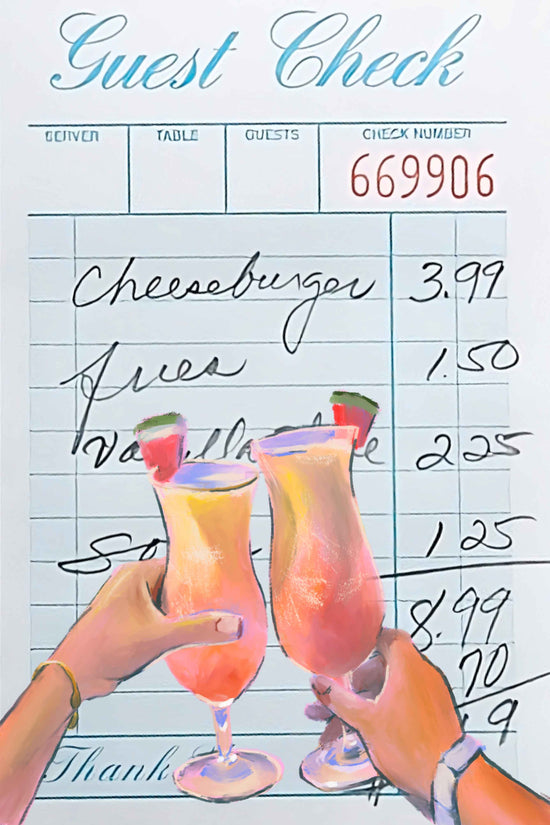 Guest Check
SERVER TABLE GUESTS CHECK NUMBER
669906
Cheeseburger 3.99
fries 1.50
2.25
1.25
8.99
70
Thank